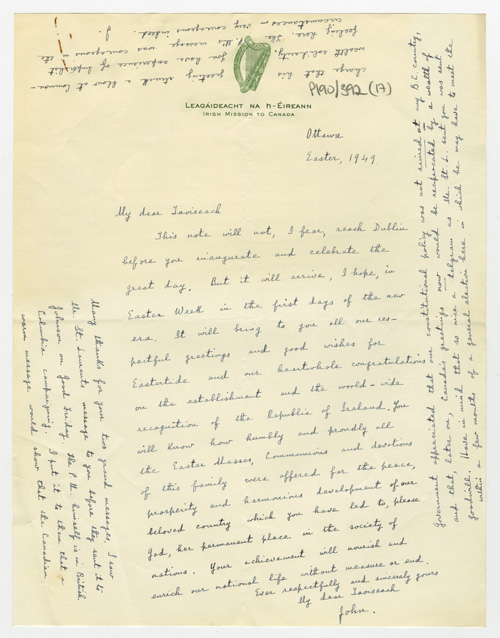 P190/392 (17)
LEAGÁIDEACHT NA h-ÉIREANN
IRISH MISSION TO CANADA
Ottawa
Easter, 1949
My dear Taoiseach
This note will not, I fear, reach Dublin
before you inaugurate and celebrate the
great day. But it will arrive, I hope, in
Easter Week in the first days of the new
era. It will bring to you all our res-
pectful greetings and good wishes for
Eastertide and our heartwhole congratulations
on the establishment and the world-wide
recognition of the Republic of Ireland. You
will know how humbly and proudly all
the Easter Masses, Communions and devotions
of this family were offered for the peace,
prosperity and harmonious development of our
beloved country which you have led to, please
God, her permanent place in the society of
nations. Your achievement will nourish and
enrich our national life without measure or end.
Ever respectfully and sincerely yours
My dear Taoiseach
John.
Many thanks for your two grand messages. I saw
Mr. St. Laurent's message to you before they sent it to
Johnson on Good Friday. The P.M. himself is in British
Columbia campaigning. I put it to them that a
warm message would show that the Canadian
Government appreciated that our constitutional policy was not aimed at my B.C. county,
and that, later on, Canada's greetings now would be reciprocated by a wealth of
goodwill. Have in mind that so nice a telegram as Mr. St. L. sent you was sent
within a few months of a general election here in which he may have to meet the
charge that his greeting struck a blow at Common-
wealth solidarity. You have experience of Imperialist
feeling here. The P.M.'s message was courageous in the
circumstances – very courageous indeed. J.